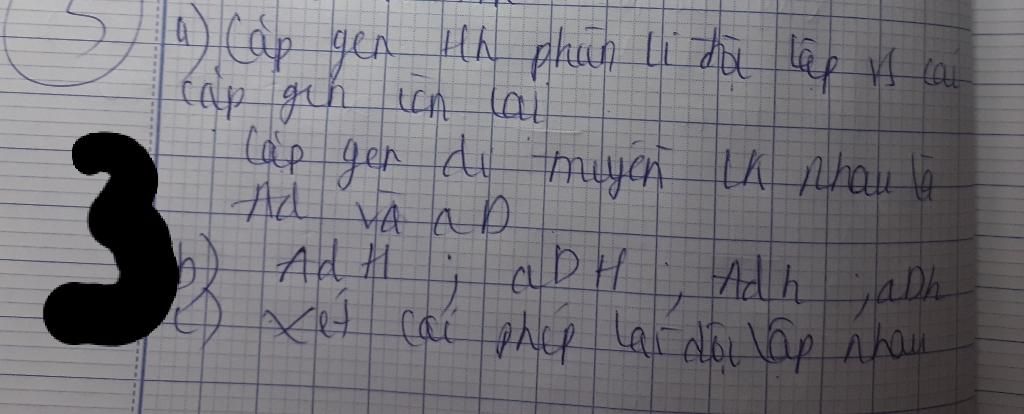 5 a) Cặp gen Hh phân li độc lập vs các
cặp gen còn lại
Cặp gen di truyền LK nhau là
Ad và aD
3
b) AdH ; aDH ; Adh ; aDh
c) Xét các phép lai độc lập nhau